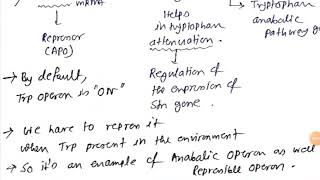 mRNA
Helps
in tryptophan
attenuation.
Tryptophan
anabolic
pathway g
Repressor
(APO)
→ By default,
Trp operon is "ON"
Regulation of
the expression of
Str gene.
→ We have to repress it
when Trp present in the environment
→ So it's an example of Anabolic operon as well
Repressible operon.